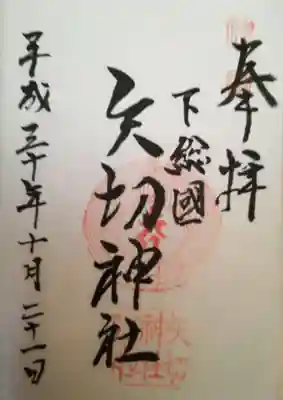 奉拝
下総國
矢切神社
平成三十年十月二十一日
矢切
神社